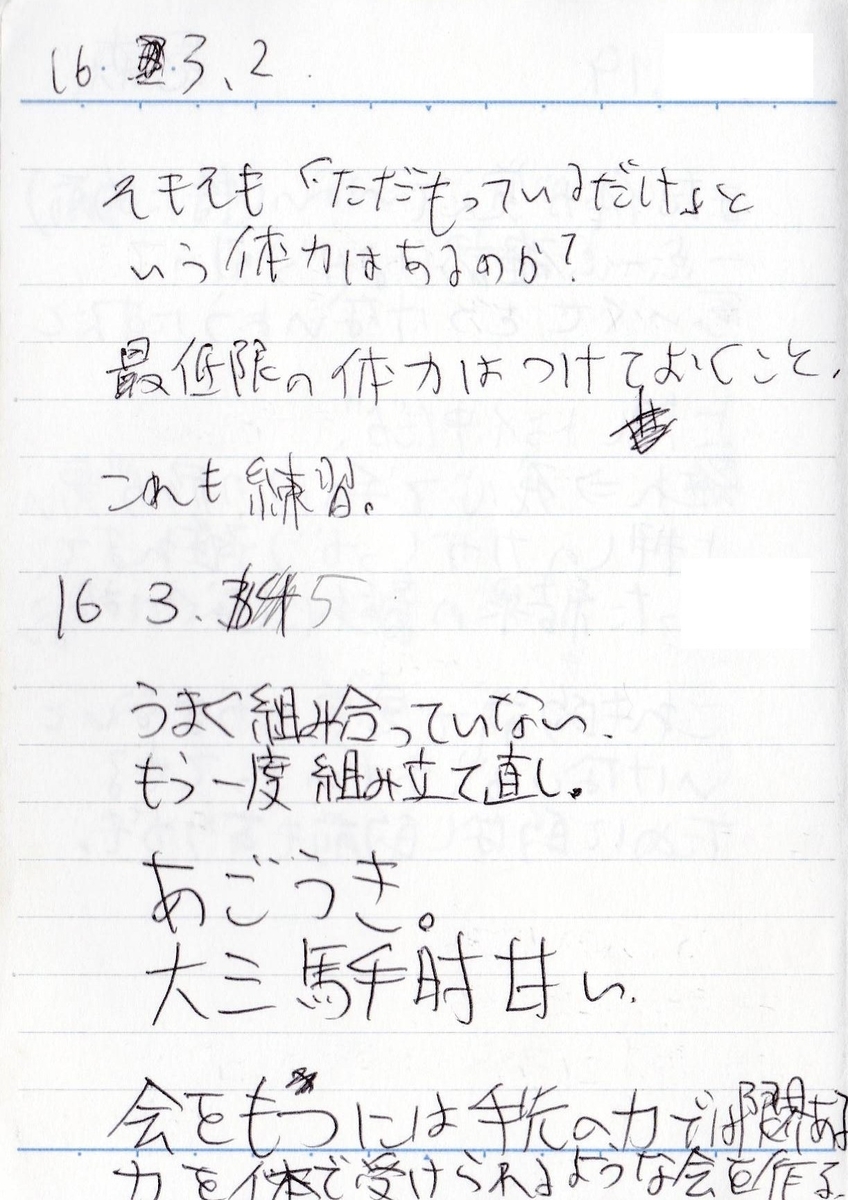 16. 3、2
そもそも『ただもっているだけ』と
いう体力はあるのか?
最低限の体力はつけておくこと、
これも練習。
16 3. 5
うまく組み合っていない、
もう一度組み立て直し。
あごうき。
大三 馬手肘甘い、
会をもつには手先の力では限界ある
力を体で受けられるような会を作る、